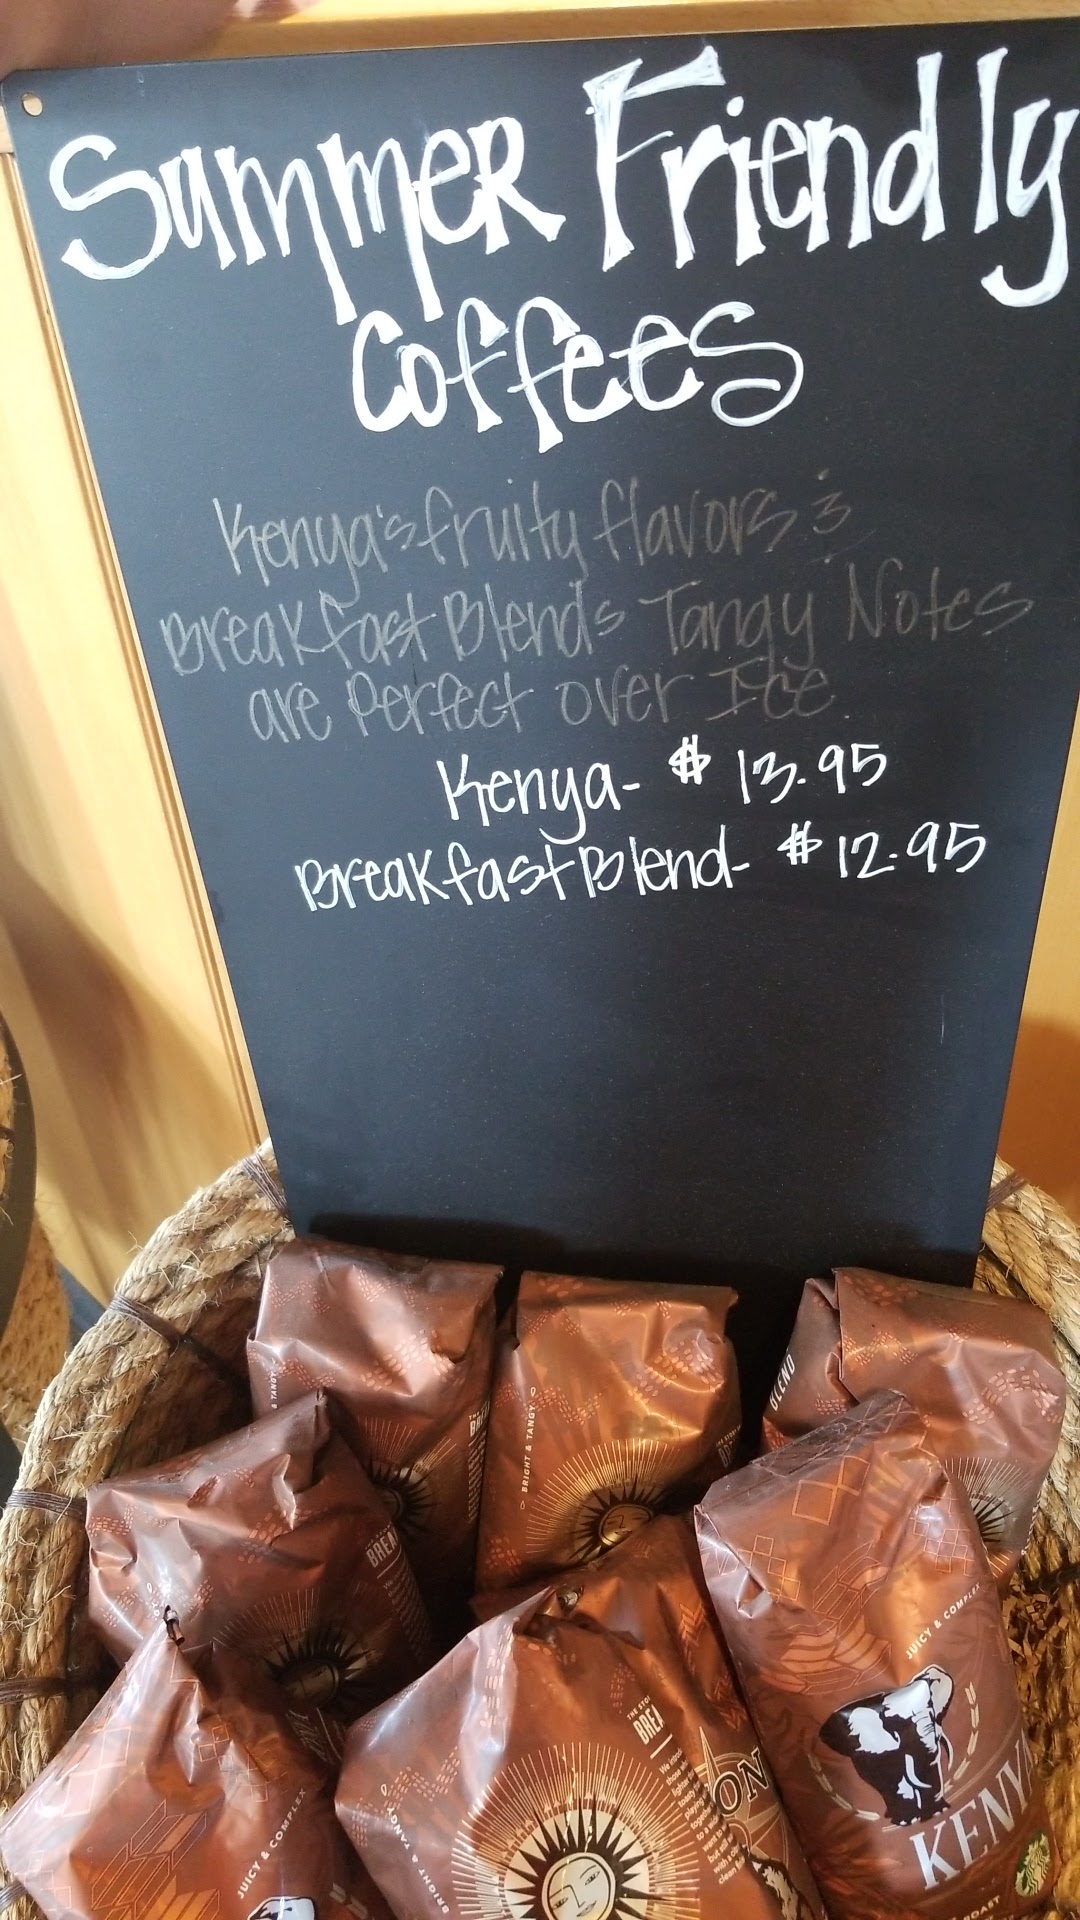 Summer Friendly
Coffees
Kenya's fruity flavors &
Breakfast Blends Tangy Notes
are Perfect over Ice
Kenya- $ 13.95
Breakfast Blend- $ 12.95
& TANGY
BREA
BRIGHT & TANGY
BLEND
BREA
JUICY & COMPLEX
KENYA
ROAST
THE STO
BREA
BRIGHT & TANGY
JUICY & COMPLEX